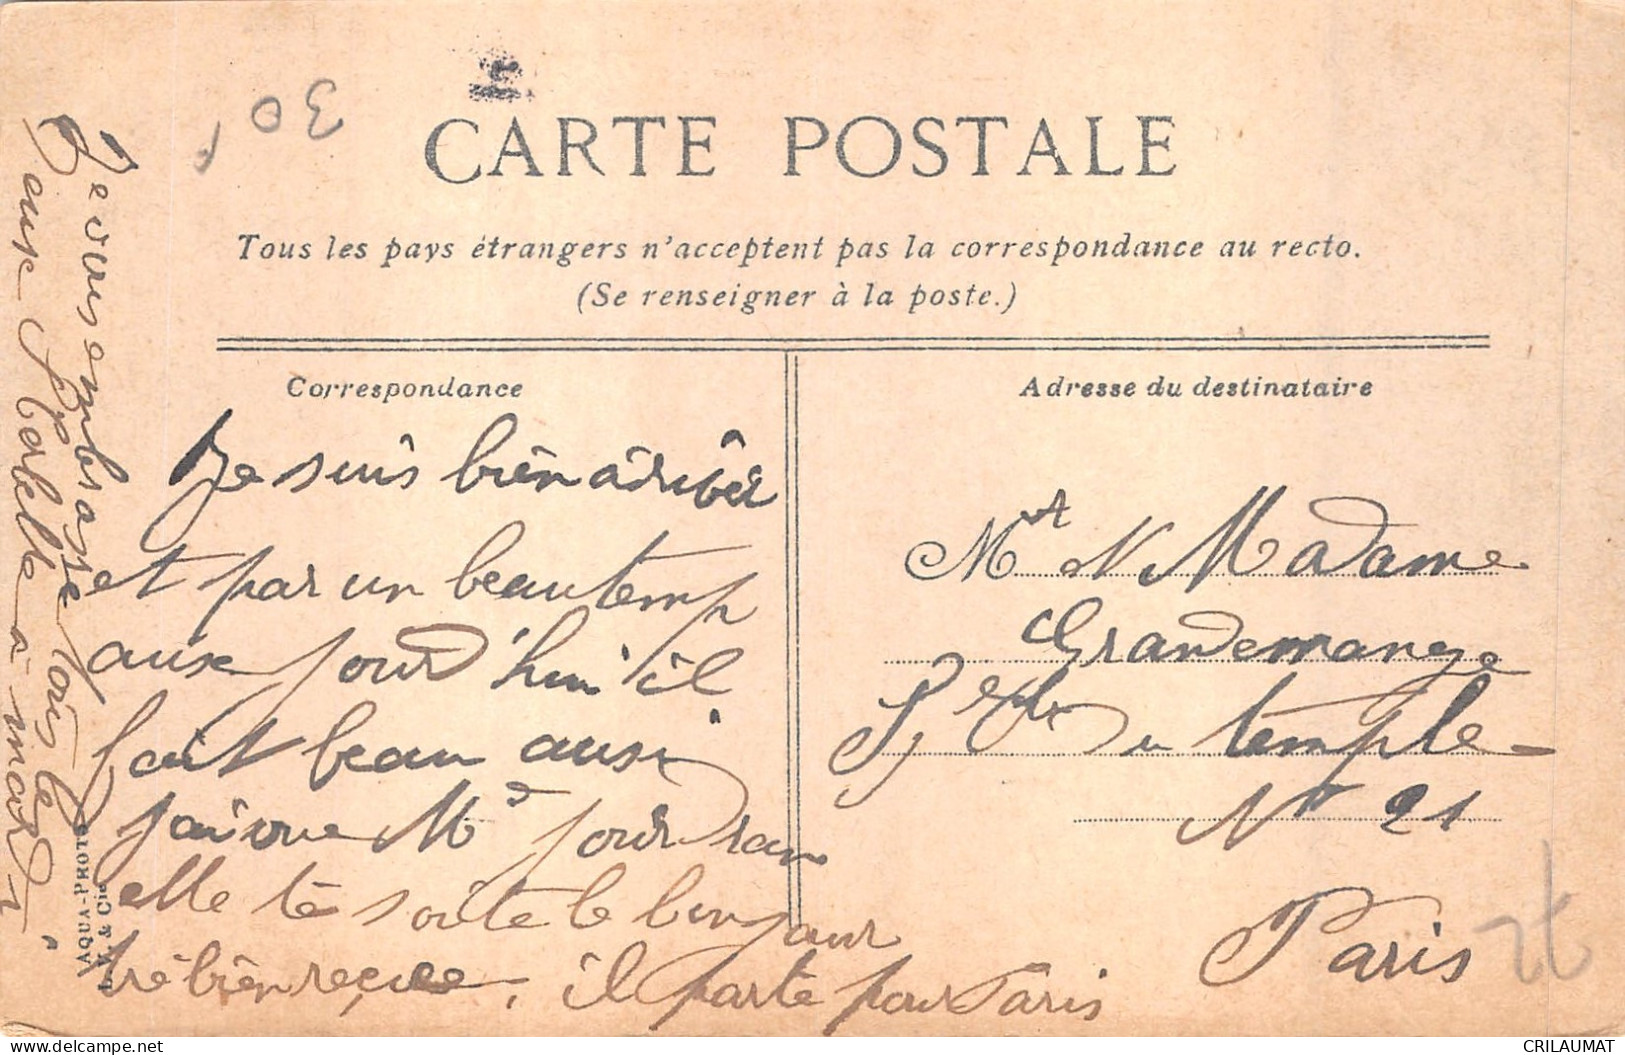 30
CARTE POSTALE
Tous les pays étrangers n'acceptent pas la correspondance au recto.
(Se renseigner à la poste.)
Correspondance
Adresse du destinataire
Je suis bien arivér
et par un beau temp
ause jourd'hui il
fait beau ausi
j'ai vue Mde jourdran
elle te soite le bonjour
tré bien reçue, il parte pour Paris
Je vous embrasse tous les
Bause à mardi
Mr N Madame
Grandemange
du temple
No 21
Paris
AQUA-PHOTO
L. V. & Cie
CRILAUMAT